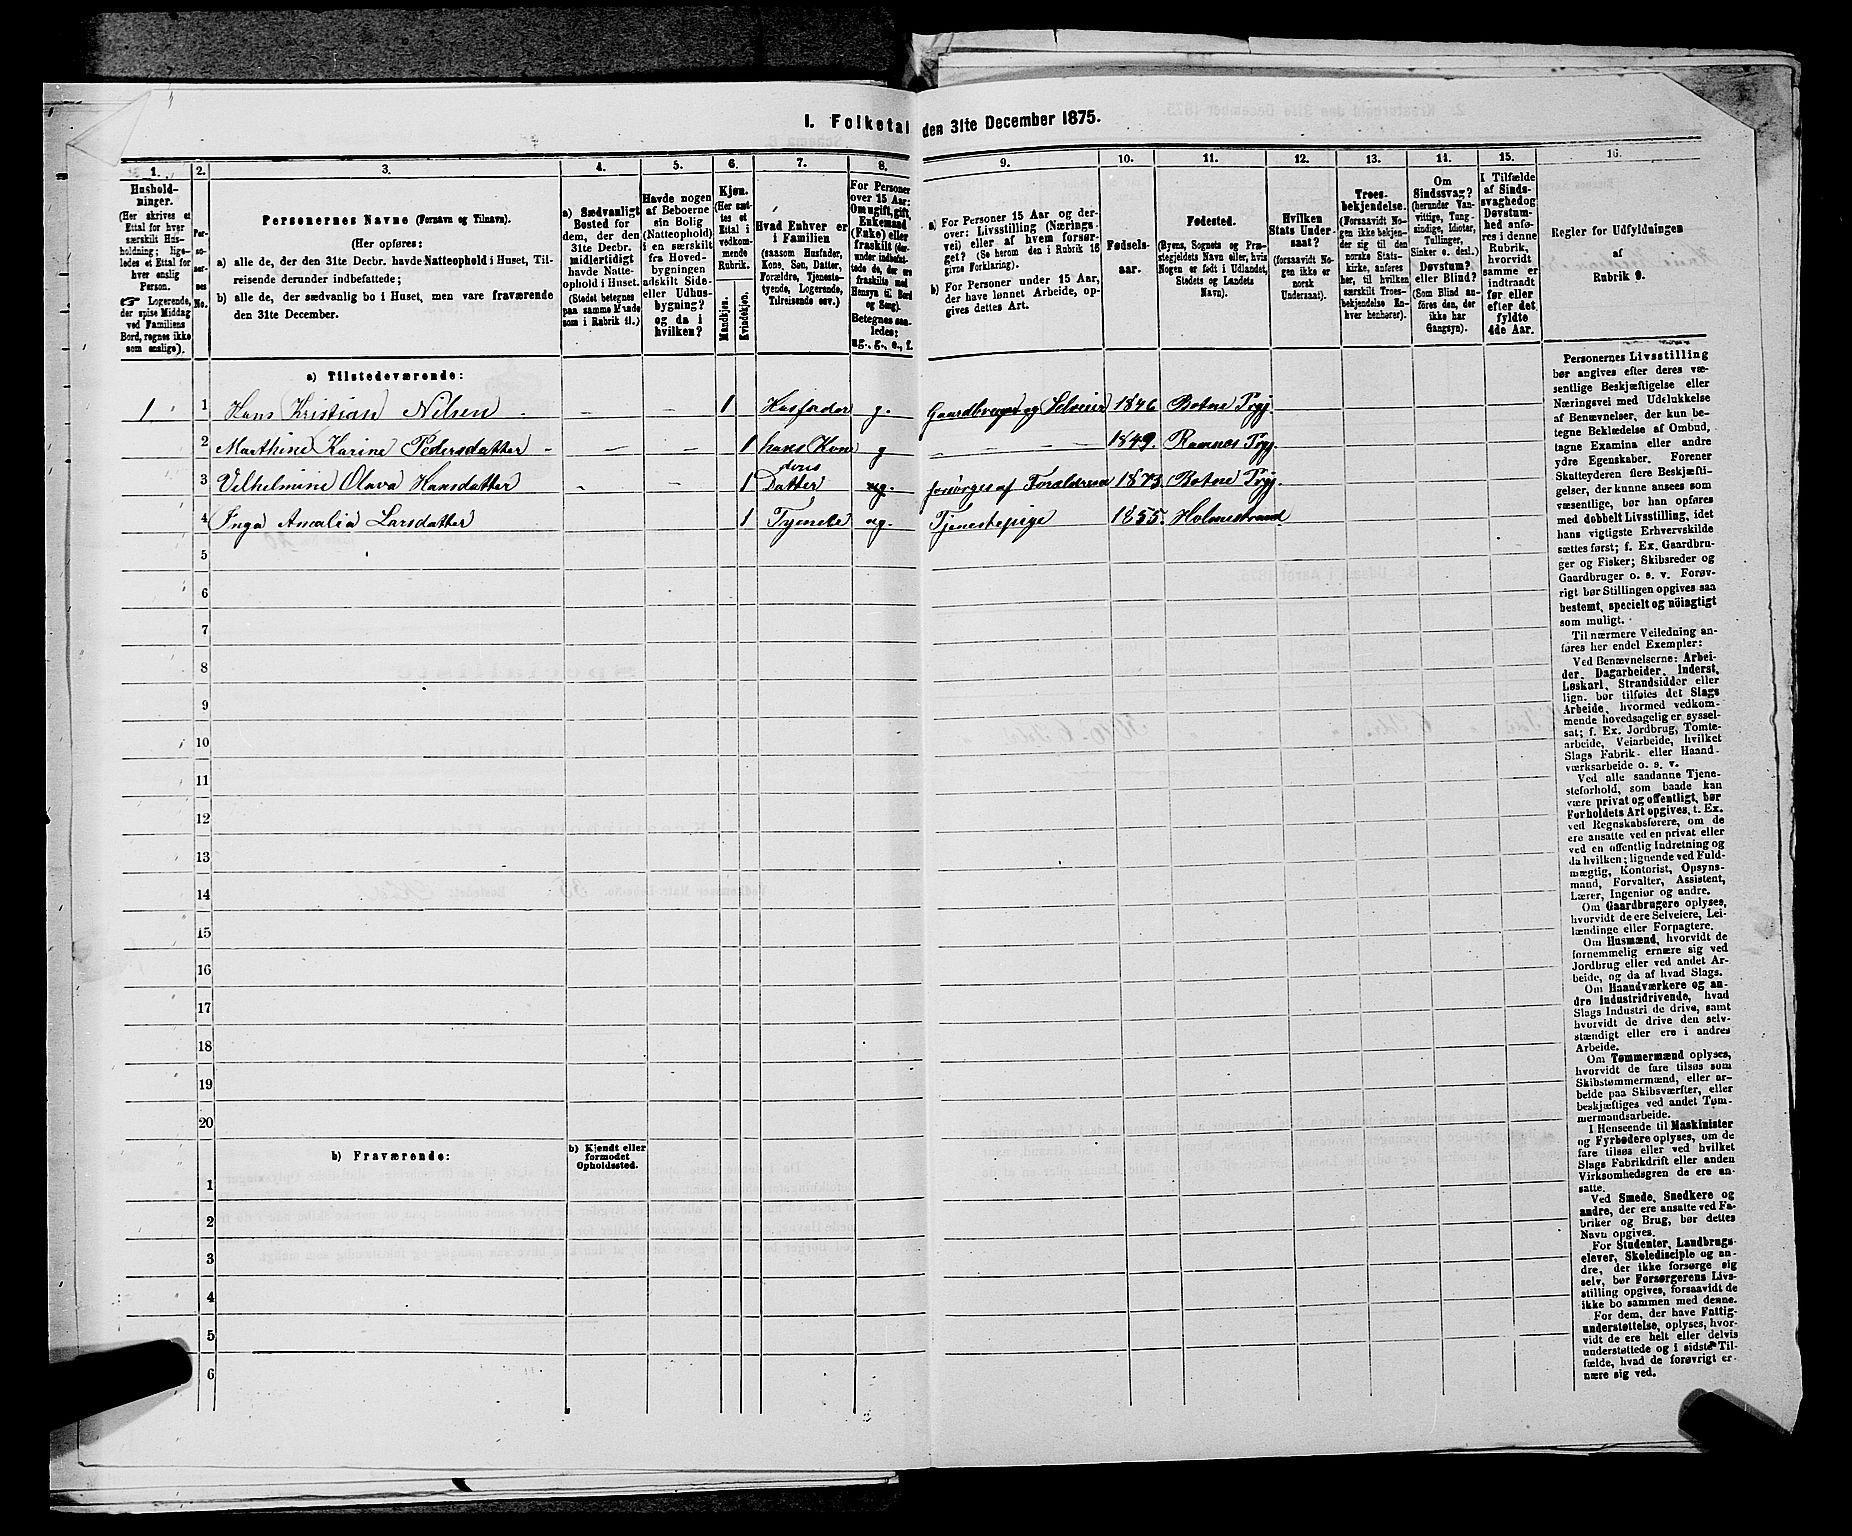 I. Folketal den 31te December 1875.
1. 2. 3. 4. 5. 6. 7. 8. 9. 10. 11. 12. 13. 14. 15. 16.
Hushold-
ninger.
(Her skrives et
Ettal for hver
særskilt Hus-
holdning; lige-
ledes et Ettal for
hver enslig
Person.
☞ Logerende,
der spise Middag
ved Familiens
Bord, regnes ikke
som enslige).
Per-
so-
ner-
nes
No.
Personernes Navne (Fornavn og Tilnavn).
(Her opføres:
a) alle de, der den 31te Decbr. havde Natteophold i Huset, Til-
reisende derunder indbefattede;
b) alle de, der sædvanlig bo i Huset, men vare fraværende
den 31te December.
a) Sædvanligt
Bosted for
dem, der den
31te Decbr.
midlertidigt
havde Natte-
ophold i Huset.
(Stedet betegnes
paa samme Maade
som i Rubrik 11.)
Havde nogen
af Beboerne
sin Bolig
(Natteophold)
i en særskilt
fra Hoved-
bygningen
adskilt Side-
eller Udhus-
bygning?
og da i
hvilken?
Kjøn.
(Her sæt-
tes et
Ettal i
vedkom-
mende
Rubrik.
Mandkjøn.
Kvindekjøn.
Hvad Enhver er
i Familien
(saasom Husfader,
Kone, Søn, Datter,
Forældre, Tjeneste-
tyende, Logerende,
Tilreisende osv.)
For Personer
over 15 Aar:
Om ugift, gift,
Enkemand
(Enke) eller
fraskilt (der-
under indbefat-
tede de, der ere
fraskilte med
Hensyn til Bord
og Seng).
Betegnes saa-
ledes:
ug., g., e., f.
a) For Personer 15 Aar og der-
over: Livsstilling (Nærings-
vei) eller af hvem forsør-
get? (Se herom den i Rubrik 16
givne Forklaring).
b) For Personer under 15 Aar,
der have lønnet Arbeide, op-
gives dettes Art.
Fødsels-
aar.
Fødested.
(Byens, Sognets og Præ-
stegjeldets Navn eller, hvis
Nogen er født i Udlandet,
Stedets og Landets
Navn).
Hvilken
Stats Under-
saat?
(forsaavidt No-
gen ikke er
norsk
Undersaat).
Troes-
bekjendelse.
(Forsaavidt No-
gen ikke bekjen-
der sig til den
norske Stats-
kirke, anføres
her, til hvilken
særskilt Troes-
bekjendelse En-
hver henhører).
Om
Sindssvag?
(herunder Van-
vittige, Tung-
sindige, Idioter,
Tullinger,
Sinker o. desl.)
Døvstum?
eller Blind?
(Som Blind an-
føres den, der
ikke har
Gangsyn).
I Tilfælde
af Sinds-
svaghed og
Døvstum-
hed anfø-
res i denne
Rubrik,
hvorvidt
samme er
indtraadt
før eller
efter det
fyldte
4de Aar.
Regler for Udfyldningen
af
Rubrik 9.
a) Tilstedeværende:
1 1 Hans Kristian Nilsen - - 1 Husfader g. Gaardbruger og Selveier 1846 Botne Prgj
2 Marthine Karine Pedersdatter - - - 1 hans Kone g - - 1849. Ramnes Prgj.
3 Vilhelmine Olava Hansdatter - - 1 deres Datter ug. forsørges af Forældrene 1873. Botne Prgj.
4 Inga Amalia Larsdatter 1 Tyende ug. Tjenestepige 1855. Holmestrand
5
6
7
8
9
10
11
12
13
14
15
16
17
18
19
20
b) Fraværende:
b) Kjendt eller
formodet
Opholdssted.
1
2
3
4
5
6
Personernes Livsstilling
bør angives efter deres væ-
sentlige Beskjæftigelse eller
Næringsvei med Udelukkelse
af Benævnelser, der kun be-
tegne Beklædelse af Ombud,
tagne Examina eller andre
ydre Egenskaber. Forener
Skatteyderen flere Beskjæfti-
gelser, der kunne ansees som
væsentlige, bør han opføres
med dobbelt Livsstilling, idet
hans vigtigste Erhvervskilde
sættes først; f. Ex. Gaardbru-
ger og Fisker; Skibsreder og
Gaardbruger o. s. v. Forøv-
rigt bør Stillingen opgives saa
bestemt, specielt og nöiagtigt
som muligt.
Til nærmere Veiledning an-
føres her endel Exempler:
Ved Benævnelserne: Arbei-
der, Dagarbeider, Inderst,
Løskarl, Strandsidder eller
lign. bør tilføies det Slags
Arbeide, hvormed vedkom-
mende hovedsagelig er syssel-
sat; f. Ex. Jordbrug, Tomte-
arbeide, Veiarbeide, hvilket
Slags Fabrik- eller Haand-
værksarbeide o. s. v.
Ved alle saadanne Tjene-
steforhold, som baade kan
være privat og offentligt, bør
Forholdets Art opgives, t. Ex.
ved Regnskabsførere, om de
ere ansatte ved en privat eller
ved en offentlig Indretning og
da hvilken; lignende ved Fuld-
mægtig, Kontorist, Opsyns-
mand, Forvalter, Assistent,
Lærer, Ingeniør og andre.
Om Gaardbrugere oplyses,
hvorvidt de ere Selveiere, Lei-
lændinge eller Forpagtere.
Om Husmænd, hvorvidt de
fornemmelig ernære sig ved
Jordbrug eller ved andet Ar-
beide, og da af hvad Slags.
Om Haandværkere og an-
dre Industridrivende, hvad
Slags Industri de drive, samt
hvorvidt de drive den selv-
stændigt eller ere i andres
Arbeide.
Om Tømmermænd oplyses,
hvorvidt de fare tilsøs som
Skibstømmermænd, eller ar-
beide paa Skibsværfter, eller
beskjæftiges ved andet Tøm-
mermandsarbeide.
I Henseende til Maskinister
og Fyrbødere oplyses, om de
fare tilsøs eller ved hvilket
Slags Fabrikdrift eller anden
Virksomhedsgren de ere an-
satte.
Ved Smede, Snedkere og
andre, der ere ansatte ved Fa-
briker og Brug, bør dettes
Navn opgives.
For Studenter, Landbrugs-
elever, Skoledisciple og an-
dre, der ikke forsørge sig
selv, bør Forsørgerens Livs-
stilling opgives, forsaavidt de
ikke bo sammen med denne.
For dem, der have Fattig-
understøttelse, oplyses, hvor-
vidt de ere helt eller delvis
understøttede og i sidste Til-
fælde, hvad de forøvrigt er-
nære sig ved.